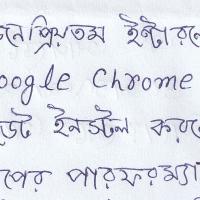 জনপ্রিয়তম ইন্টারনে
oogle Chrome
ডেট ইনস্টল করে
পের পারফরম্যা